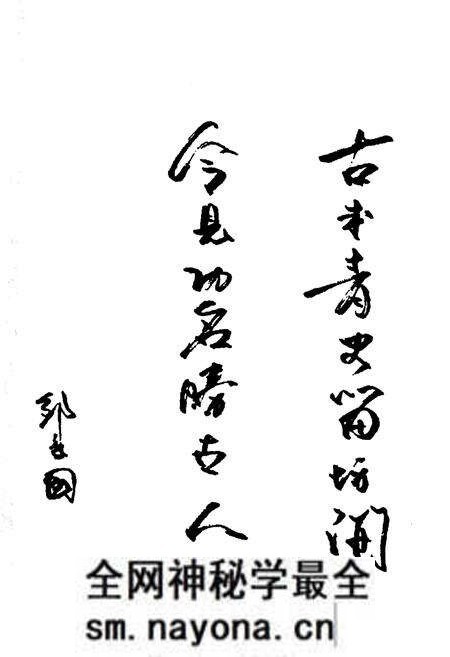 古来青史留坊
今見功名勝古人
国
全网神秘学最全
sm.nayona.cn